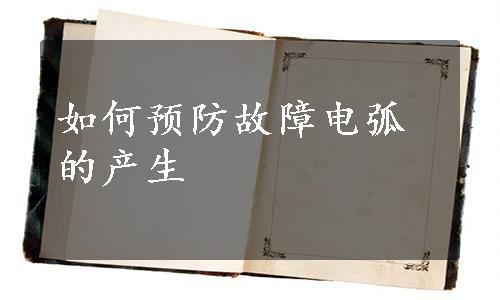 如何预防故障电弧
的产生